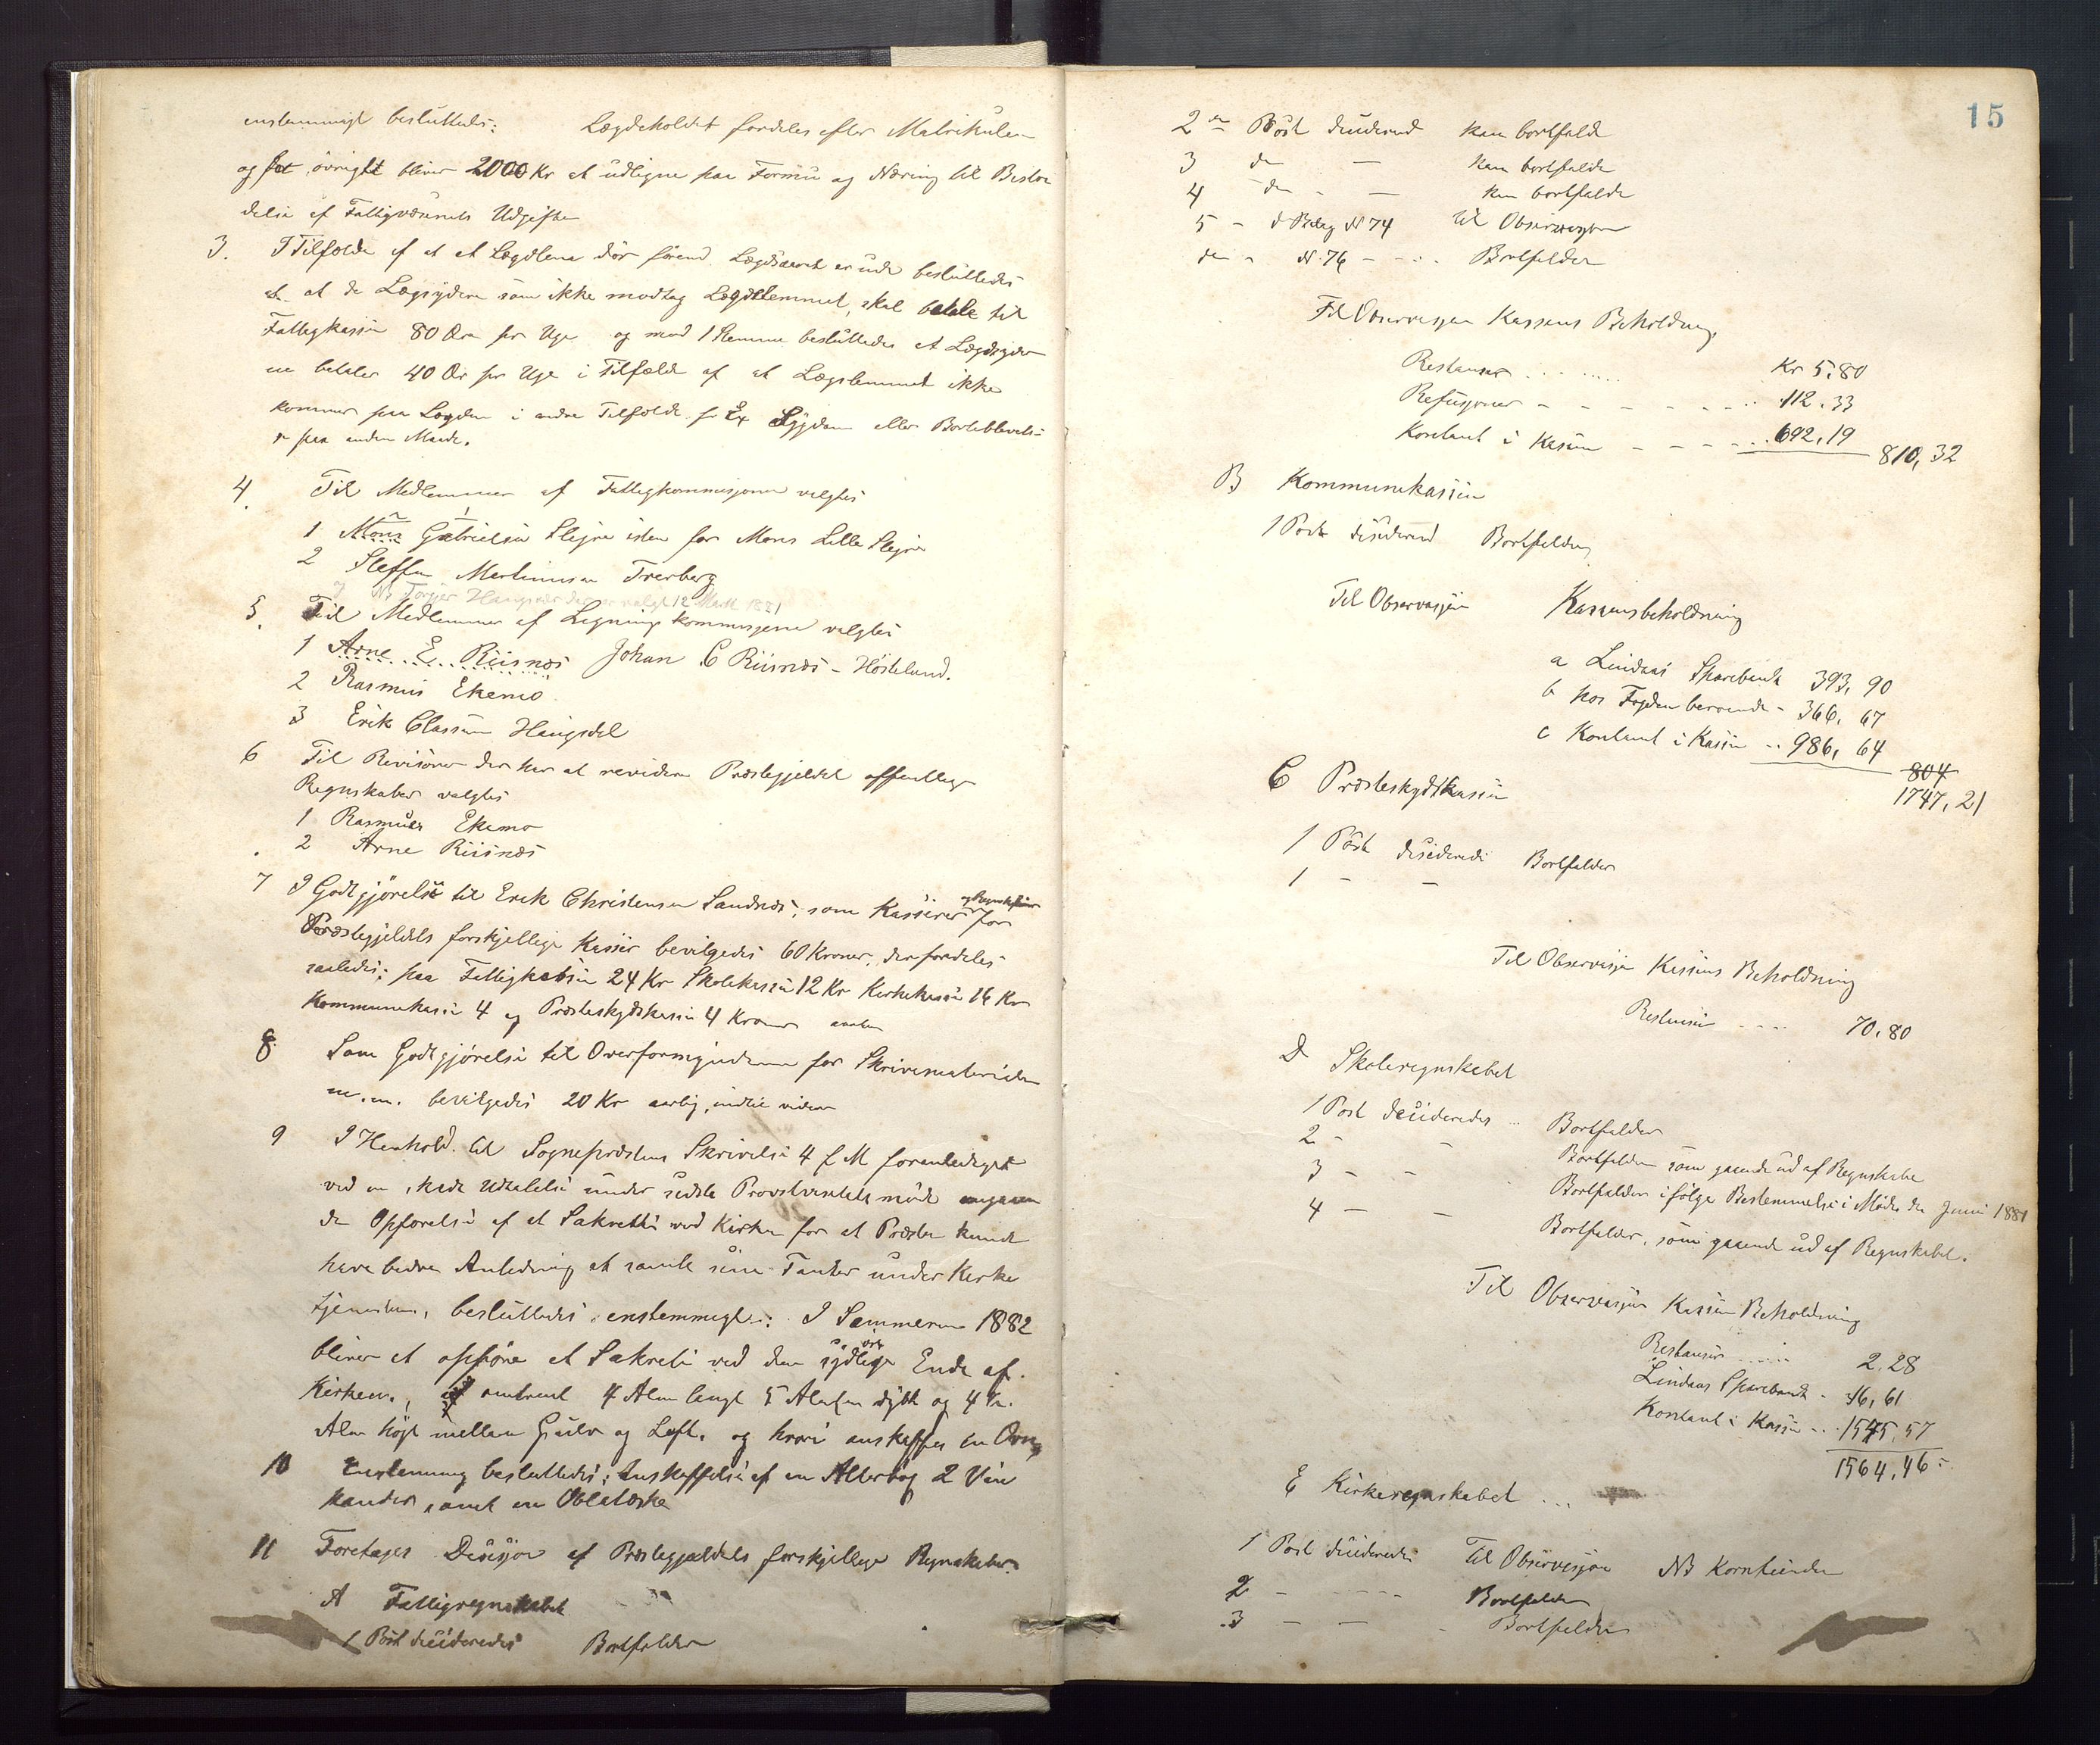 enstemmigt besluttedes: Lægdeholdet fordeles efter Matrikulen
og for øvrigt bliver 2000 Kr at udligne paa Formue og Næring til Bestri
delse af Fattigvæsnets Udgifter
3. I Tilfælde af at et Lægdslem dør førend Lægdsaaret er ude besluttedes
at de Lægdsydere som ikke modtog Lægdslemmet, skal betale til
Fattigkassen 80 Øre pr Uge og mod 1 Stemme besluttedes at Lægdsyder
ne betaler 40 Ør pr Uge i Tilfælde af at Lægslemmet ikke
kommer paa Lægden i andre Tilfælde f Ex Sygdom eller Bortblivelse
paa anden Maade.
4. Til Medlemmer af Fattigkommisjonen valgtes
1 Mons Gabrielsen Sleire isten for Mons Lille Sleire
2 Steffen Martinusen Træsberg
5. Til Medlemmer af Ligningskommisjonen valgtes
1 Arne E. Riisnæs Johan C Riisnæs - Hosteland.
2 Rasmus Ekemo
3 Erik Classen Haugsdal
6 Til Revisorer der har at revidere Præstegjeldets offentlige
Regnskaber valgtes
1 Rasmus Ekemo
2 Arne Riisnæs
7 I Godtgjørelse til Erik Christensen Sandnæs, som Kasserer og Regnskabsfører for
Præstegjeldets forskjellige Kasser bevilgedes 60 Kroner, der fordeles
saaledes: paa Fattigkassen 24 Kr Skolekassen 12 Kr Kirkekassen 16 Kr
Kommunekassen 4 og Præsteskydskassen 4 Kroner
8 Som Godtgjørelse til Overformynderne for Skrivematerialer
m.m. bevilgedes 20 Kr aarlig, indtil videre
9 I Henhold til Sognepræstens Skrivelse 4 f M foranlediget
ved en skede Udtalelse under sidste Provstvisitats møde angaaen
de Opførelse af et Sakresti ved Kirken for at Præsten kunde
have bedre Anledning at samle sine Tanker under Kirke
tjenesten, besluttedes enstemmigt: I Sommeren 1882
bliver at opføre et Sakresti ved den sydlige Ende af
Kirken, af omtrent 4 Alen langt 5 Alen dybt og 4 1/2
Alen høgt mellem Gulv og Loft. og hvori anskaffes en Ovn
10 Enstemmig besluttedes: Anskaffelse af en Alterbog 2 Vin
kander, samt en Oblatæske
11 Foretages Desisjon af Præstegjældets forskjellige Regnskaber.
A Fattigregnskabet
1 Post desideredes Bortfalder
15
2den Post desidered kan bortfalde
3 de — kan bortfalde
4 de - — kan bortfalde
5 - d Bilag N 74 til Observasjon
de - N. 76 - - - Bortfalder
Til Observasjon Kassens Beholdning.
Restanser . . . . . Kr 5.80
Refusjoner - - - - - - 112.33
Kontant i Kassen - - - - 692,19
810,32
B Kommunekassen
1 Post desidered Bortfalder
Til Observasjon Kassensbeholdning
a Lindaas Sparebank 393,90
b hos Fogden beroende - 366,67
c Kontant i Kassen - 986,64
804
1747,21
C Præsteskydskassen
1 Post desiderede Bortfalder
1 - -
Til Observasjon Kassens Beholdning
Restanser - - - - 70.80
D Skoleregnskabet
1 Post desideredes - Bortfalder
2 - - Bortfalder som gaaende ud af Regnskabe
3 - - Bortfalder ifølge Bestemmelse i Møde den Juni 1881
4 - - Bortfalder, som gaaende ud af Regnskabet.
Til Observasjon Kassen Beholdning
Restanser . . . . . 2.28
Lindaas Sparebank - 16,61
Kontant i Kassen - - 1545.57
1564,46
E Kirkeregnskabet . . .
1 Post desideredes Til Observasjon NB Korntiende
2 - - - - Bortfalder
3 - - - Bortfalder